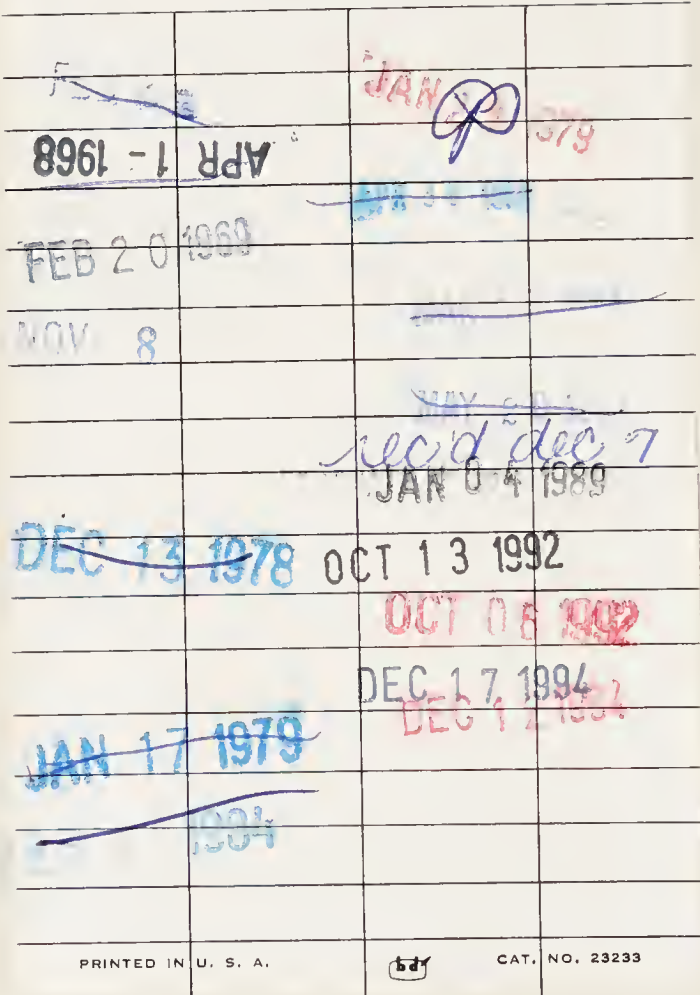 APR 1 - 1968
FEB 20 1969
NOV 8
DEC 13 1978
JAN 17 1979
1984
JAN 1979
MAY
rec'd dec 7
JAN 04 1989
OCT 13 1992
OCT 06 1992
DEC 17 1994
DEC 12 1994
PRINTED IN U. S. A.
bd
CAT. NO. 23233